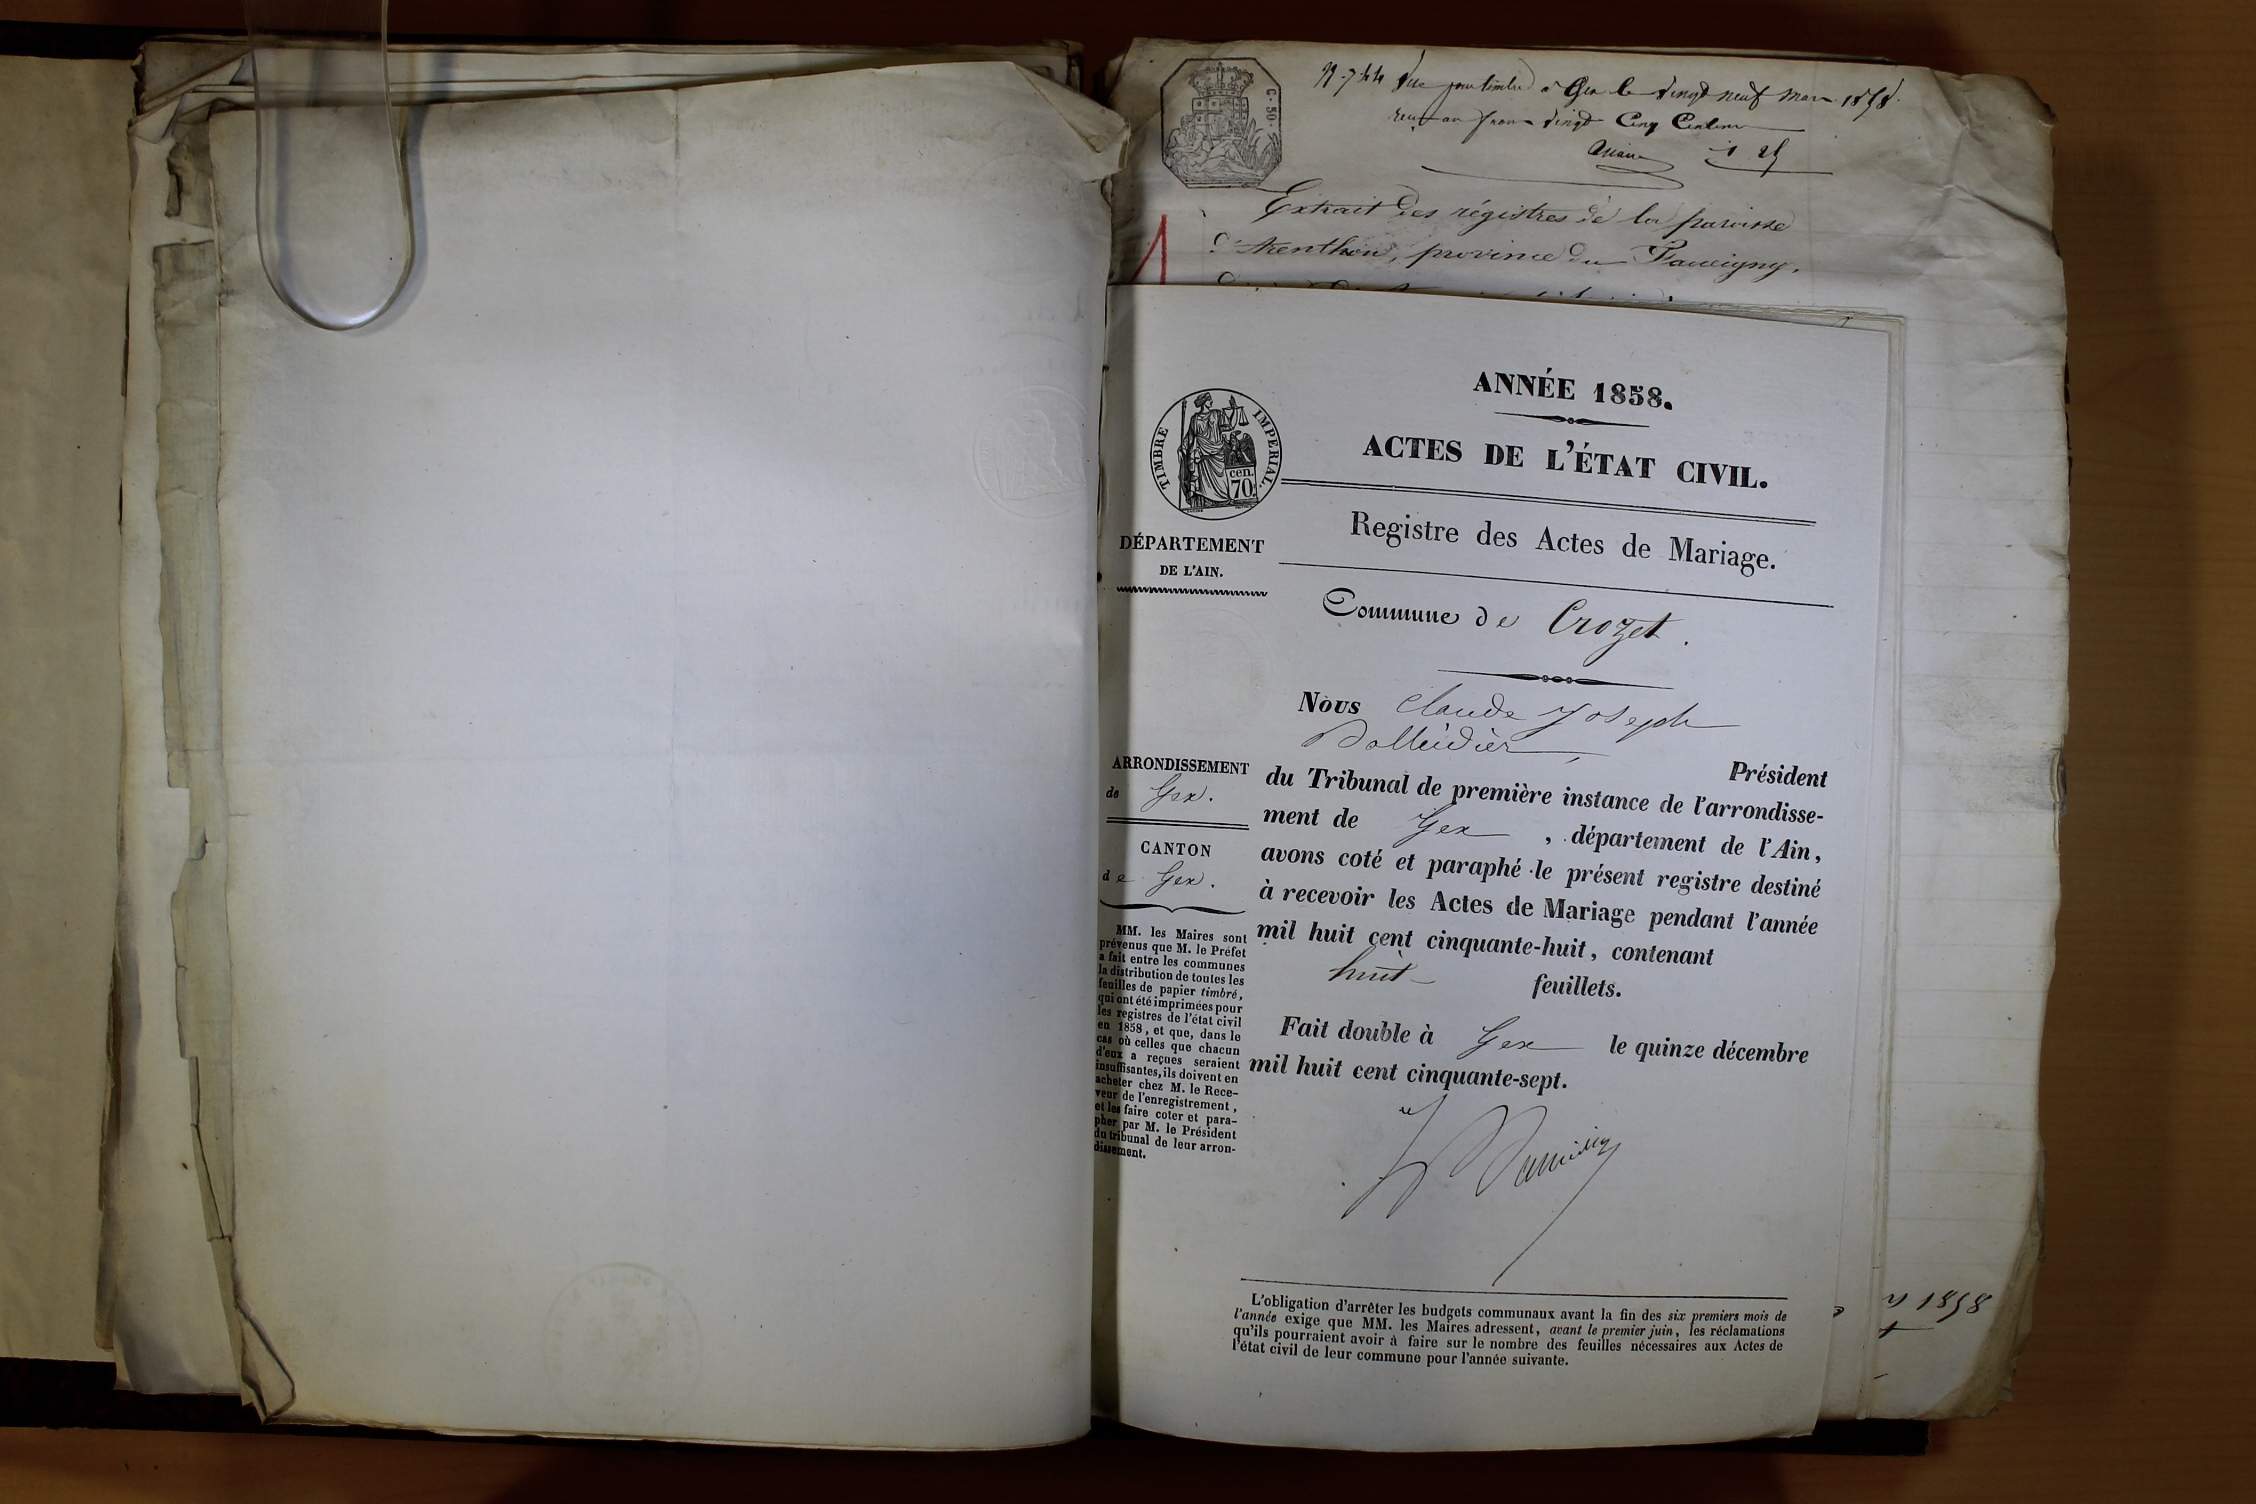 C. 50.
N. 744 Vu pour timbre à Gex le vingt neuf mars 1858.
reçu un franc vingt Cinq Centimes
1 25
Extrait des régistres de la paroisse
d'Arenthon, province du Faucigny.
ANNÉE 1858.
ACTES DE L'ÉTAT CIVIL.
TIMBRE IMPERIAL.
cen.
70.
Registre des Actes de Mariage.
DÉPARTEMENT
DE L'AIN.
Commune de Crozet.
Nous Claude Joseph
Président
ARRONDISSEMENT
de Gex.
CANTON
de Gex.
du Tribunal de première instance de l'arrondisse-
ment de Gex, département de l'Ain,
avons coté et paraphé le présent registre destiné
à recevoir les Actes de Mariage pendant l'année
mil huit cent cinquante-huit, contenant
huit feuillets.
Fait double à Gex le quinze décembre
mil huit cent cinquante-sept.
MM. les Maires sont
prévenus que M. le Préfet
a fait entre les communes
la distribution de toutes les
feuilles de papier timbré,
qui ont été imprimées pour
les registres de l'état civil
en 1858, et que, dans le
cas où celles que chacun
d'eux a reçues seraient
insuffisantes, ils doivent en
acheter chez M. le Rece-
veur de l'enregistrement,
et les faire coter et para-
pher par M. le Président
du tribunal de leur arron-
dissement.
L'obligation d'arrêter les budgets communaux avant la fin des six premiers mois de
l'année exige que MM. les Maires adressent, avant le premier juin, les réclamations
qu'ils pourraient avoir à faire sur le nombre des feuilles nécessaires aux Actes de
l'état civil de leur commune pour l'année suivante.
1858